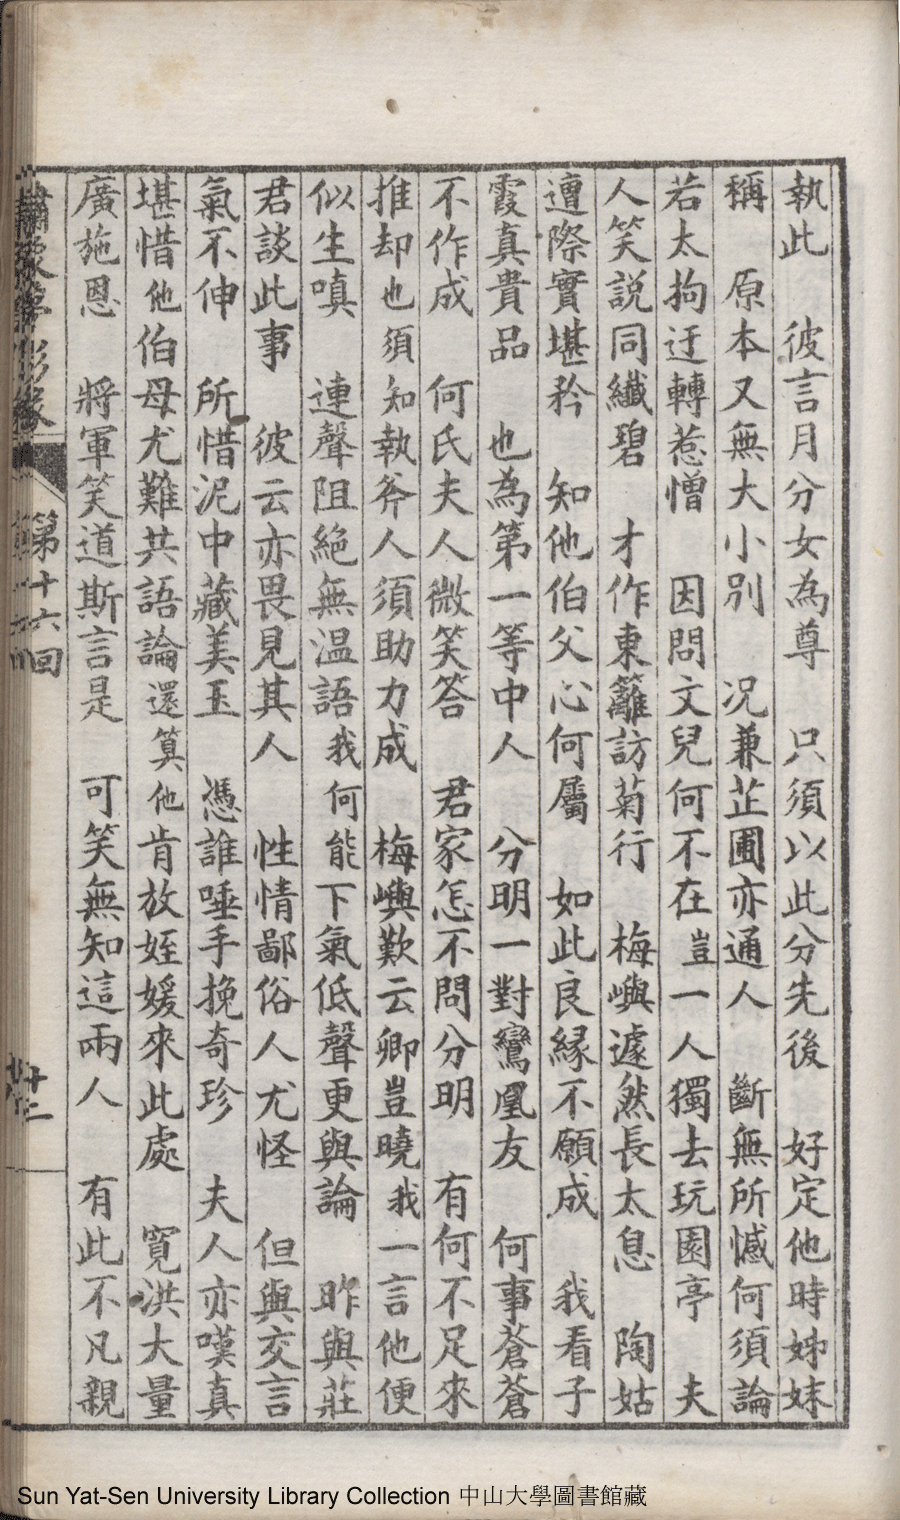 執此　彼言月分女為尊　只須以此分先後　好定他時姊妹
稱　原本又無大小別　況兼芷圃亦通人　斷無所憾何須論
若太拘迂轉惹憎　因問文兒何不在豈一人獨去玩園亭　夫
人笑説同纖碧　才作東籬訪菊行　梅嶼遽然長太息　陶姑
邅際實堪矜　知他伯父心何屬　如此良緣不願成　我看子
霞真貴品　也為第一等中人　分明一對鸞凰友　何事蒼蒼
不作成　何氏夫人微笑答　君家怎不問分明　有何不足來
推却也須知執斧人須助力成　梅嶼歎云卿豈曉我一言他便
似生嗔　連聲阻絕無温語我何能下氣低聲更與論　昨與莊
君談此事　彼云亦畏見其人　性情鄙俗人尤怪　但與交言
氣不伸　所惜泥中藏美玉　憑誰唾手挽奇珍　夫人亦嘆真
堪惜他伯母尤難共語論還算他肯放姪媛來此處　寬洪大量
廣施恩　將軍笑道斯言是　可笑無知這兩人　有此不凡親
第十六回
Sun Yat-Sen University Library Collection 中山大學圖書館藏